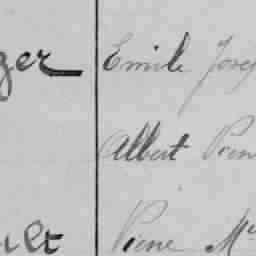 ger Emile Jose
Albert Pren
ult Pierre Me